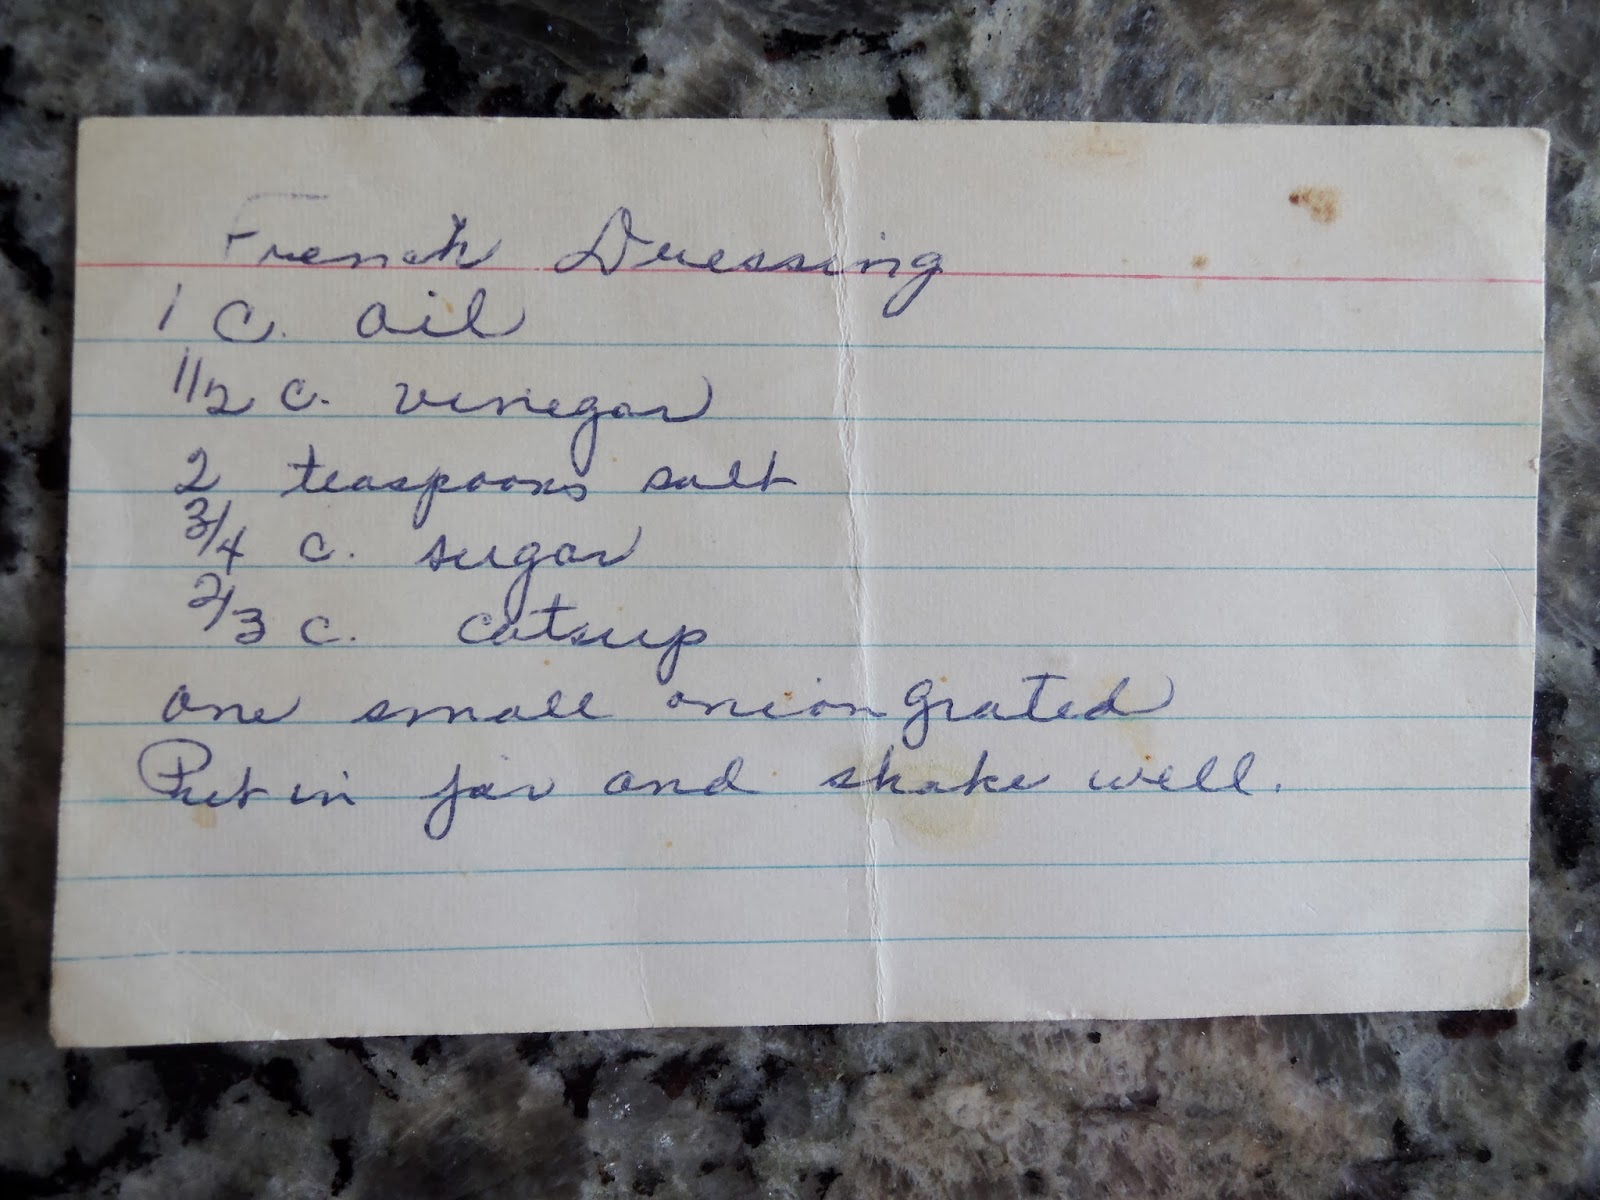 French Dressing
1 c. oil
1 1/2 c. vinegar
2 teaspoons salt
3/4 c. sugar
2/3 c. catsup
one small onion grated
Put in jar and shake well.